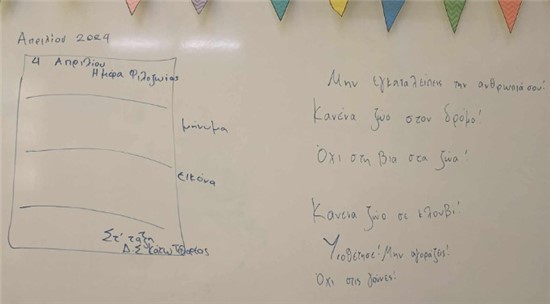 Απριλίου 2024
4 Απριλίου
Ημέρα Φιλοζωίας
μηνυμα
εικόνα
Στ' τάξη
Δ.Σ Κάτω
Μην εγκαταλείπεις την ανθρωπιά σου!
Κανένα ζώο στον δρόμο!
Όχι στη βια στα ζώα!
Κανενα ζώο σε κλουβί!
Υιοθέτησε! Μην αγοράζεις!
Όχι στις γούνες!